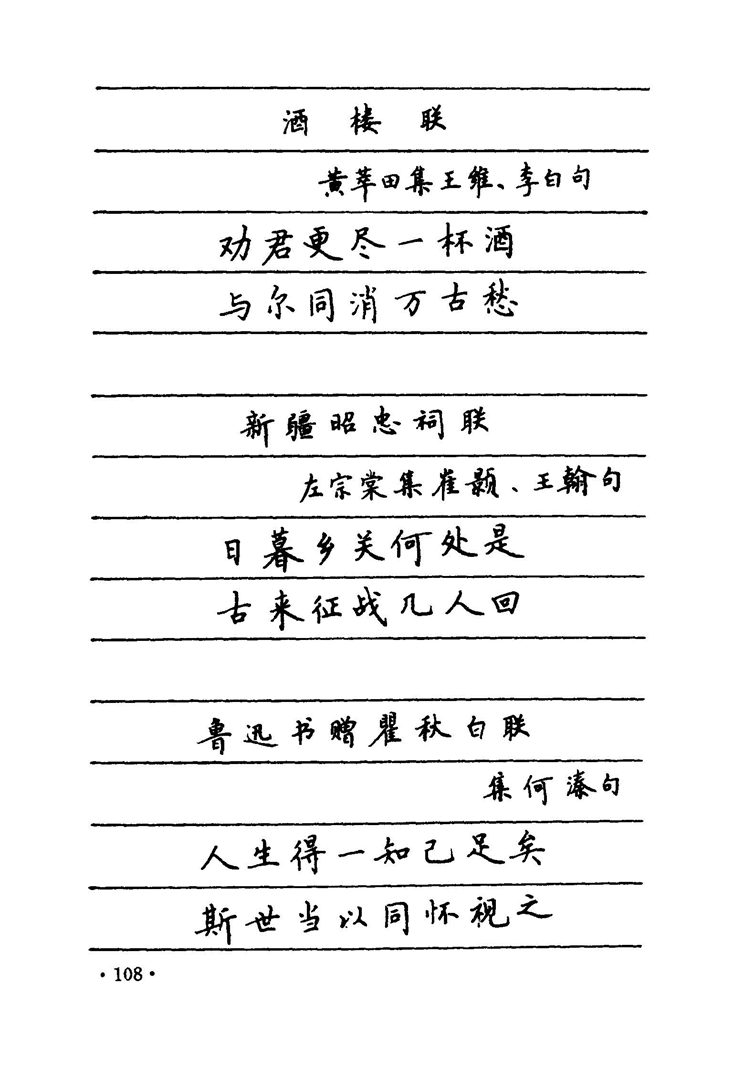 酒楼联
黄萃田集王维、李白句
劝君更尽一杯酒
与尔同消万古愁
新疆昭忠祠联
左宗棠集崔颢、王翰句
日暮乡关何处是
古来征战几人回
鲁迅书赠瞿秋白联
集何溱句
人生得一知己足矣
斯世当以同怀视之
·108·